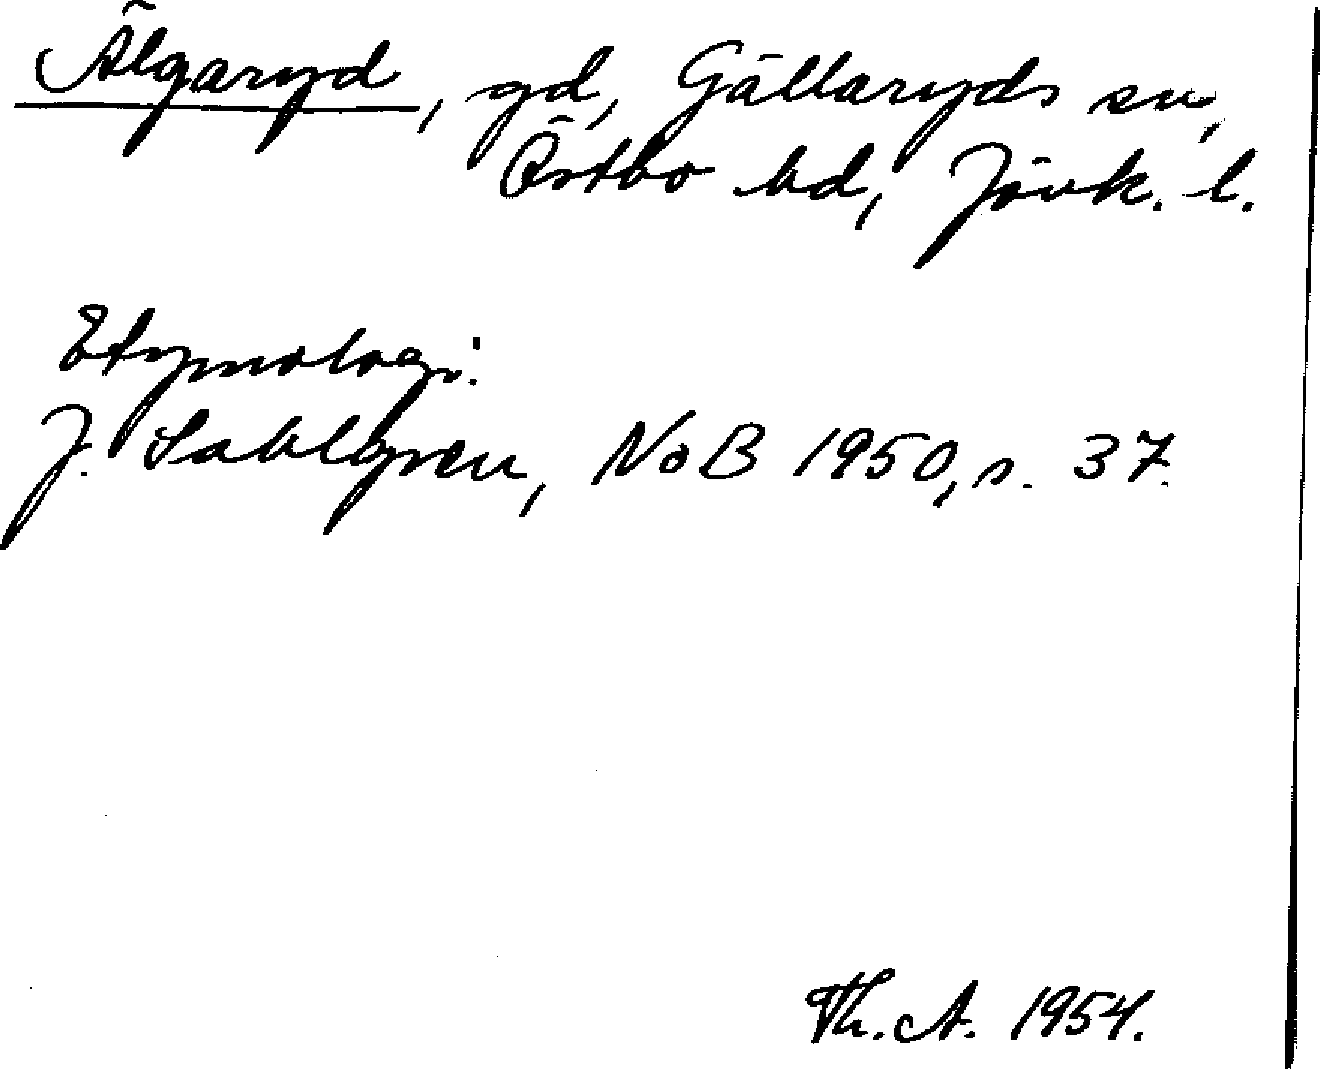 Älgaryd, gd, Gällaryds sn,
Östbo hd, Jönk. l.
Etymologi:
J. Sahlgren, NoB 1950, s. 37.
Th. A. 1954.